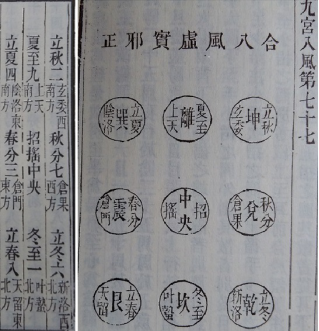 九宮八風第七十七
合八風虛實邪正
立秋坤玄委
夏至離上天
立夏巽陰洛
秋分兌倉果
招中央搖
春分震倉門
立冬乾新洛
冬至坎叶蟄
立春艮天留
立秋二玄委西南方秋分七倉果西方立冬六新洛西北方
夏至九上天南方招搖中央冬至一叶蟄北方
立夏四陰洛東南方春分三倉門東方立春八天留東北方